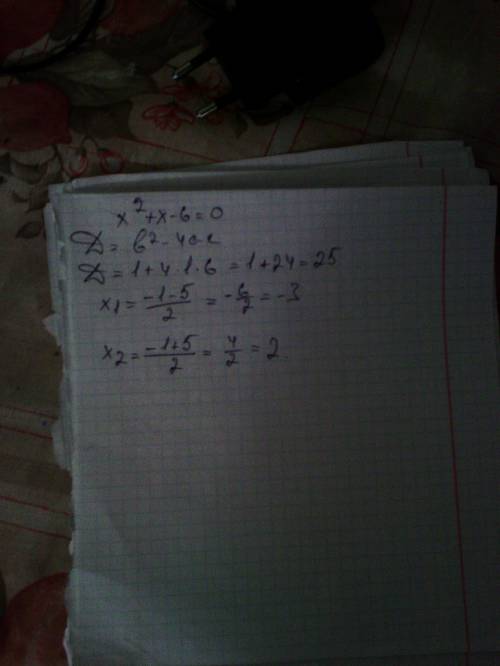 x²+x-6=0
D = b²-4ac
D = 1+4·1·6 = 1+24=25
x1 = (-1-5)/2 = -6/2 = -3
x2 = (-1+5)/2 = 4/2 = 2